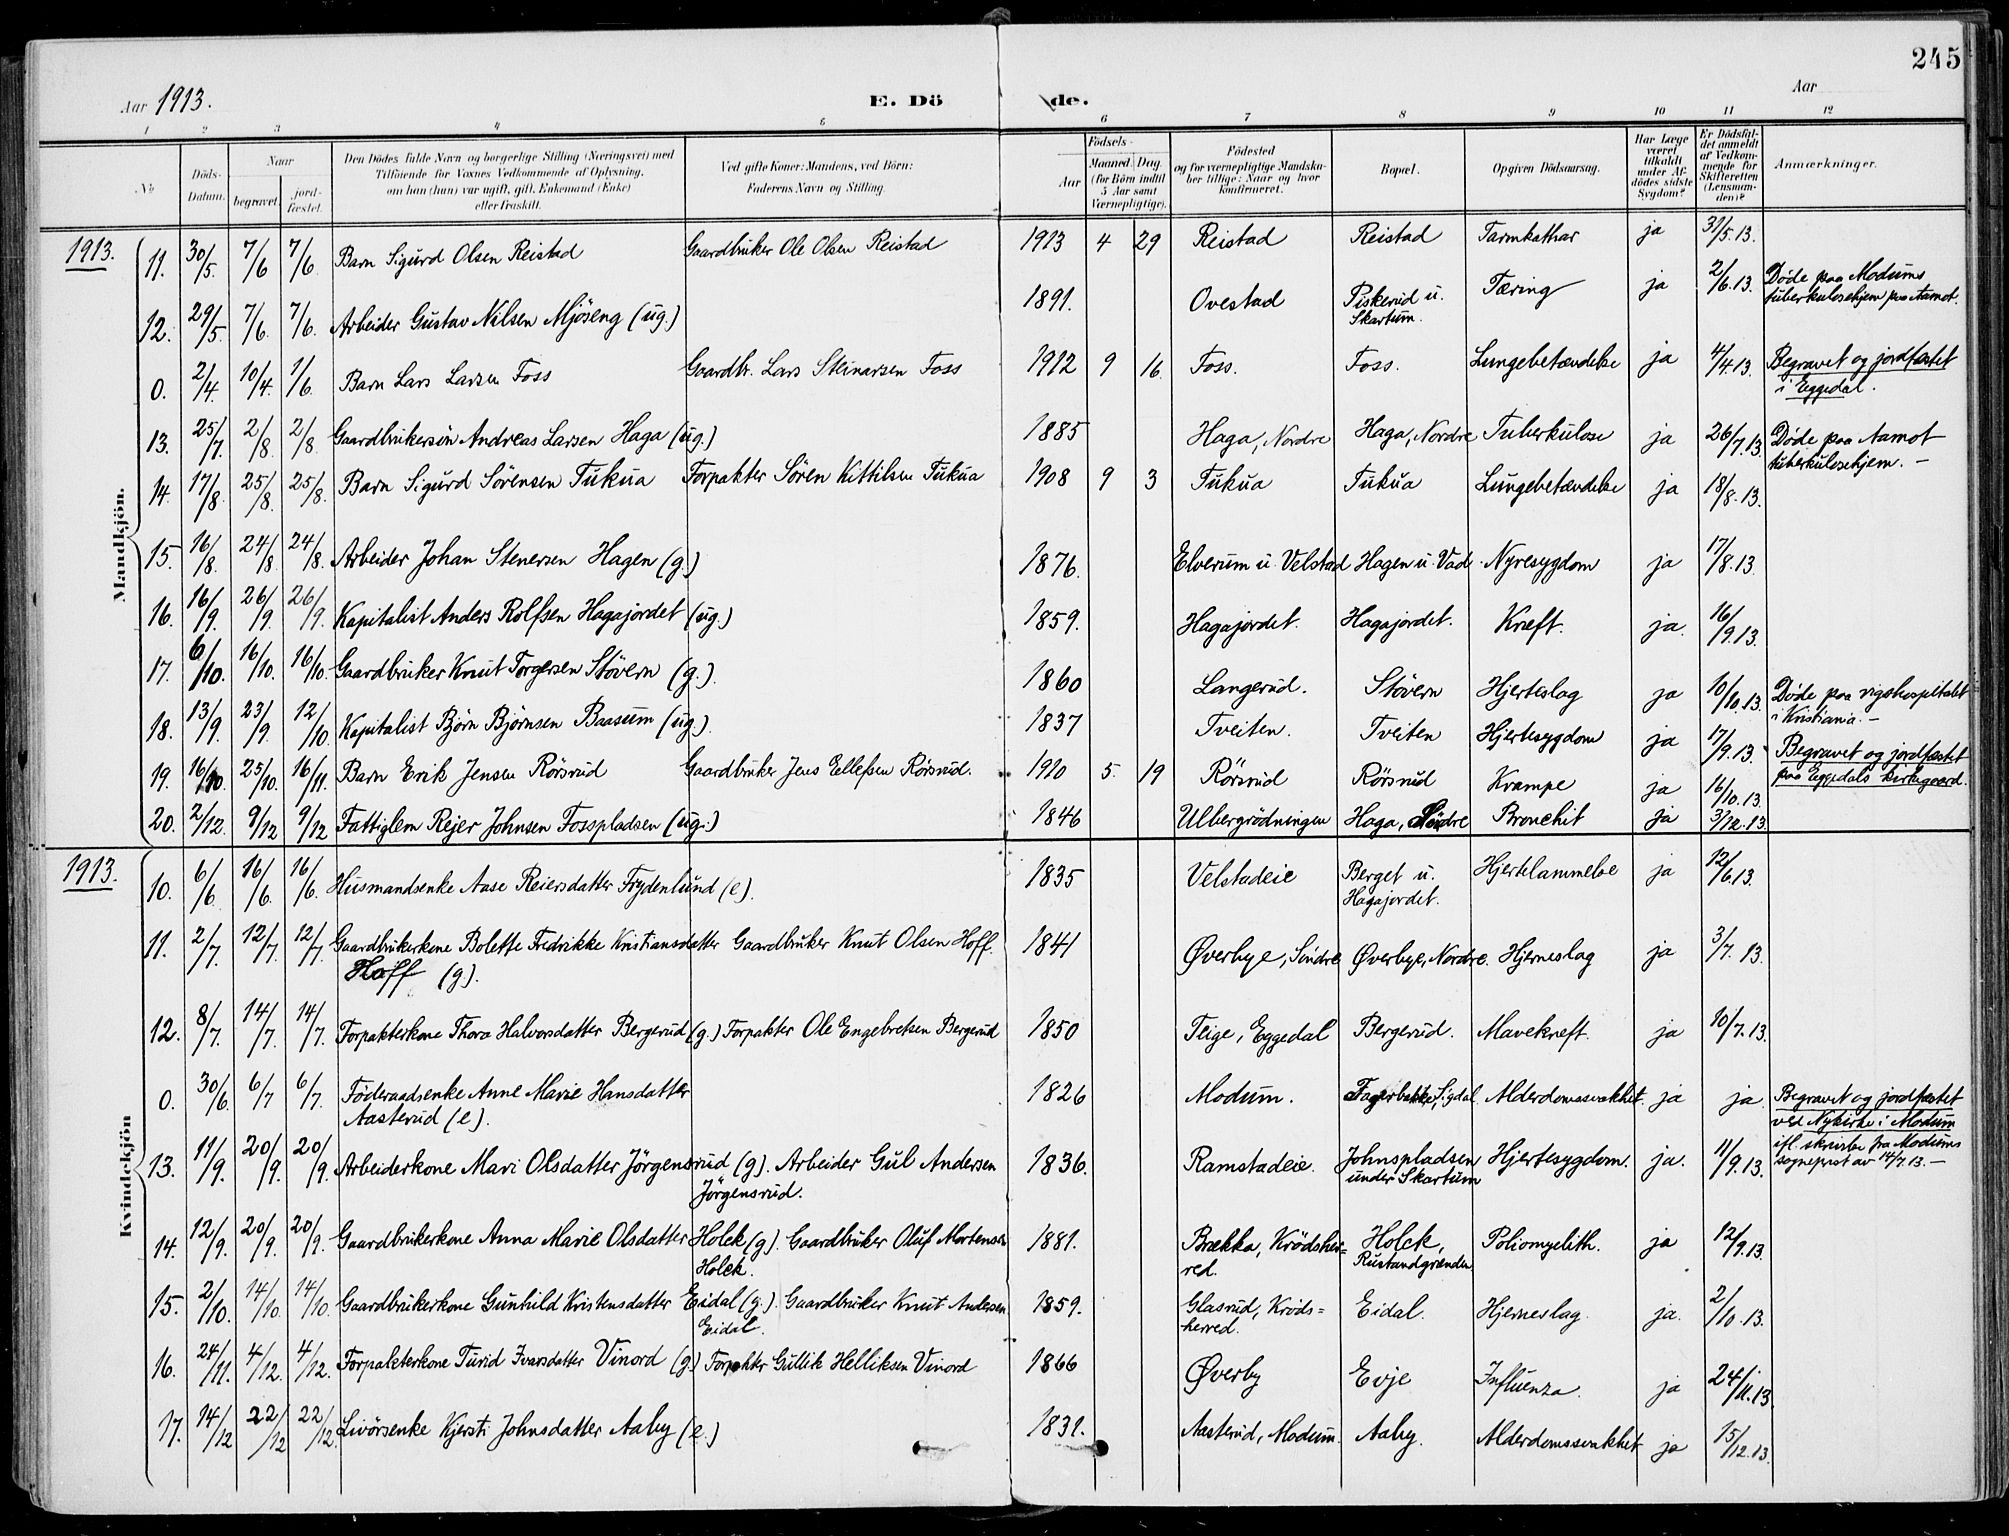 245
Aar 1913. E. Dö de. Aar
1 2 3 4 5 6 7 8 9 10 11 12
No
Döds-Datum.
Naar
begravet.
jord-fæstet.
Den Dödes fulde Navn og borgerlige Stilling (Næringsvei) med
Tilföiende for Voxnes Vedkommende af Oplysning,
om han (hun) var ugift, gift, Enkemand (Enke)
eller fraskilt.
Ved gifte Koner: Mandens, ved Börn:
Faderens Navn og Stilling.
Födsels-
Aar
Maaned. Dag.
(for Börn indtil
5 Aar samt
Værnepligtige).
Födested
og for værnepligtige Mandska-
ber tillige: Naar og hvor
konfirmeret.
Bopæl.
Opgiven Dödsaarsag.
Har Læge
været
tilkaldt
under Af-
dödes sidste
Sygdom?
Er Dödsfal-
det anmeldt
af Vedkom-
mende for
Skifteretten
(Lensman-
den)?
Anmærkninger.
Mandkjön.
1913. 11. 30/5. 7/6 7/6. Barn Sigurd Olsen Reistad Gaardbruker Ole Olsen Reistad 1913 4 29 Reistad Reistad Tarmkathar ja 31/5.13.
12. 29/5. 7/6. 7/6. Arbeider Gustav Nilsen Mjöseng (ug.) 1891. Ovestad Piskerud u. Skartum. Tæring ja 2/6.13. Døde paa Modums
tuberkulosehjem paa Aamot.
0. 2/4. 10/4. 1/6. Barn Lars Larsen Foss Gaardbr. Lars Steinarsen Foss 1912 9 16. Foss. Foss. Lungebetændelse ja 4/4.13. Begravet og jordfæstet
i Eggedal.
13. 25/7. 2/8. 2/8. Gaardbrukersøn Andreas Larsen Haga (ug.) 1885 Haga, Nordre Haga, Nordre Tuberkulose ja 26/7.13. Døde paa Aamot
tuberkulosehjem. –
14. 17/8. 25/8. 25/8. Barn Sigurd Sörensen Tukua Forpakter Sören Kittilsen Tukua 1908 9 3 Tukua Tukua Lungebetændelse ja 18/8.13.
15. 16/8. 24/8. 24/8. Arbeider Johan Stenersen Hagen (g.) 1876. Elverum u. Velstad Hagen u. Vad Nyresygdom ja 17/8.13.
16. 16/9. 26/9. 26/9. Kapitalist Anders Rolfsen Hagajordet (ug.) 1859. Hagajordet. Hagajordet. Kræft. ja. 16/9.13.
17. 6/10. 16/10. 16/10. Gaardbruker Knut Torgersen Støvern (g.). 1860 Langerud. Støvern Hjerteslag ja 10/10.13. Døde paa rigshospitalet
i Kristiania. –
18. 13/9. 23/9. 12/10. Kapitalist Bjørn Bjørnsen Baasum (ug.). 1837 Tveiten. Tveiten Hjertesygdom ja 17/9.13.
19. 16/10. 25/10. 16/11. Barn Erik Jensen Rörsrud Gaardbruker Jens Ellefsen Rörsrud. 1910 5. 19 Rörsrud Rörsrud Krampe ja 16/10.13. Begravet og jordfæstet
paa Eggedals kirkegaard.
20. 2/12. 9/12 9/12 Fattiglem Rejer Johnsen Fosspladsen (ug.) 1846 Ulbergrödningen Haga, Söndre Bronchit ja 3/12.13.
Kvindekjön
1913. 10. 6/6. 16/6. 16/6. Husmandsenke Aase Reiersdatter Frydenlund (e). 1835 Velstadeie Berget u. Hagajordet. Hjertelammelse ja 12/6.13.
11. 2/7. 12/7. 12/7. Gaardbrukerkone Bolette Fredrikke Kristiansdatter Gaardbruker Knut Olsen Hoff. 1841 Øverbye, Söndre Øverbye, Nordre. Hjerneslag ja 3/7.13.
Hoff (g).
12. 8/7. 14/7. 14/7. Forpakterkone Thora Halvorsdatter Bergerud (g.) Forpakter Ole Engebretsen Bergerud 1850 Teige, Eggedal Bergerud. Mavekræft. ja 10/7.13.
0. 30/6. 6/7 6/7. Föderaadsenke Anne Marie Hansdatter 1826 Modum. Fagerbakke, Sigdal Alderdomssvakhet. ja ja Begravet og jordfæstet
Aasterud (e). ved Nykirke i Modum
ifl. skrivelse fra Modums
sogneprest av 14/7.13. –
13. 11/9. 20/9. 20/9. Arbeiderkone Mari Olsdatter Jörgensrud (g). Arbeider Gul Andersen 1836. Ramstadeie. Johnspladsen under Skartum Hjertesygdom. ja. 11/9.13.
Jörgensrud.
14. 12/9. 20/9. 20/9. Gaardbrukerkone Anna Marie Olsdatter Holek (g). Gaardbruker Oluf Mortensen 1881. Brækka, Krödsher= red. Holek, Rustandgrænden Poliomyelith. ja 12/9.13.
Holek.
15. 2/10. 14/10. 14/10. Gaardbrukerkone Gunhild Kristensdatter Eidal (g.). Gaardbruker Knut Andersen 1859. Glasrud, Kröds= herred. Eidal. Hjerneslag ja. 2/10.13.
Eidal.
16. 24/11. 4/12. 4/12. Forpakterkone Turid Ivarsdatter Vinord (g.) Forpakter Gullik Helliksen Vinord 1866 Øverby Evje Influenza. ja 24/11.13.
17. 14/12 22/12 22/12. Livörsenke Kjersti Johnsdatter Aaby (e.) 1831. Aasterud, Modum. Aaby. Alderdomssvakhet ja 15/12.13.